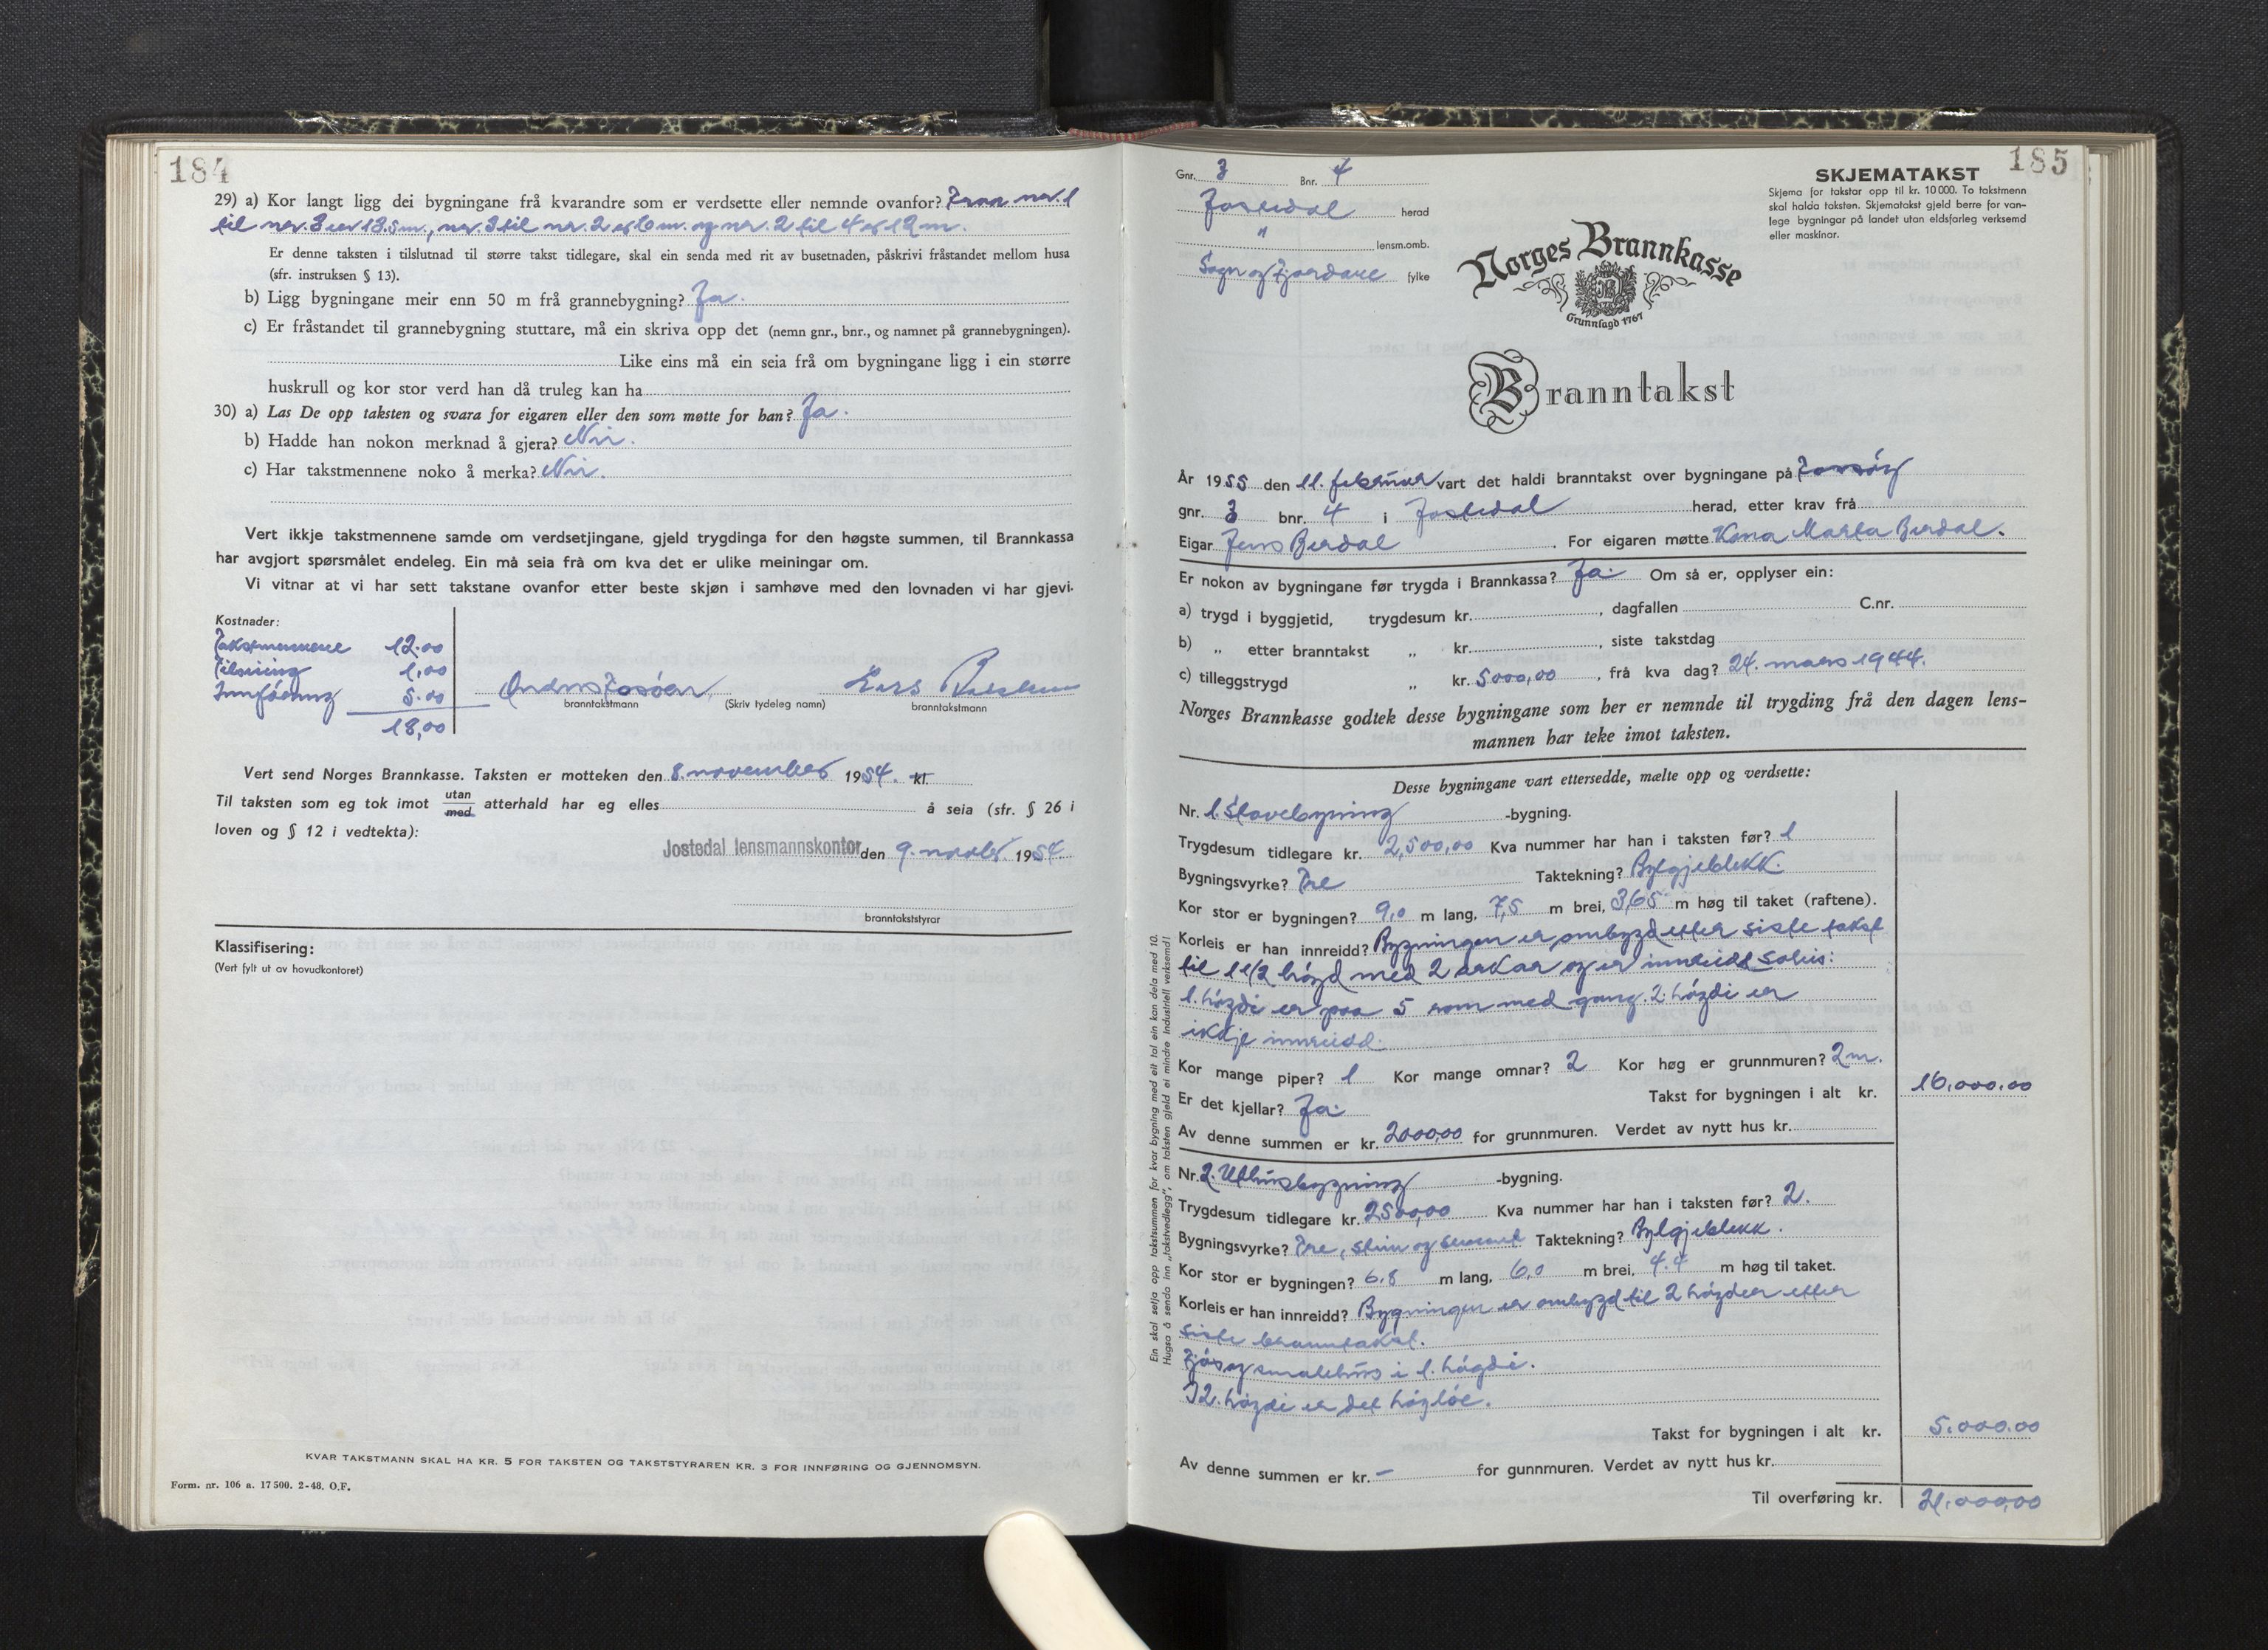 184
29) a) Kor langt ligg dei bygningane frå kvarandre som er verdsette eller nemnde ovanfor? Fraa nr. 1
til nr. 3 er 13.5 m., nr. 3 til nr. 2 er 6 m. og nr. 2 til 4 er 12 m.
Er denne taksten i tilslutnad til større takst tidlegare, skal ein senda med rit av busetnaden, påskrivi fråstandet mellom husa
(sfr. instruksen § 13).
b) Ligg bygningane meir enn 50 m frå grannebygning? Ja.
c) Er fråstandet til grannebygning stuttare, må ein skriva opp det (nemn gnr., bnr., og namnet på grannebygningen).
Like eins må ein seia frå om bygningane ligg i ein større
huskrull og kor stor verd han då truleg kan ha
30) a) Las De opp taksten og svara for eigaren eller den som møtte for han? Ja.
b) Hadde han nokon merknad å gjera? Nei.
c) Har takstmennene noko å merka? Nei.
Vert ikkje takstmennene samde om verdsetjingane, gjeld trygdinga for den høgste summen, til Brannkassa
har avgjort spørsmålet endeleg. Ein må seia frå om kva det er ulike meiningar om.
Vi vitnar at vi har sett takstane ovanfor etter beste skjøn i samhøve med den lovnaden vi har gjevi.
Kostnader:
Takstmennene 12.00
Tilsiing 1,00
Innføring 5.00
18,00
Anders Fossøen Lars
branntakstmann (Skriv tydeleg namn) branntakstmann
Vert send Norges Brannkasse. Taksten er motteken den 8. november 1954. kl.
Til taksten som eg tok imot utan/med atterhald har eg elles å seia (sfr. § 26 i
loven og § 12 i vedtekta):
Jostedal lensmannskontor den 9. novbr. 1954
branntakststyrar
Klassifisering:
(Vert fylt ut av hovudkontoret)
KVAR TAKSTMANN SKAL HA KR. 5 FOR TAKSTEN OG TAKSTSTYRAREN KR. 3 FOR INNFØRING OG GJENNOMSYN.
Form. nr. 106 a. 17 500. 2-48. O.F.
185
Gnr. 3 Bnr. 4
Jostedal herad
" lensm.omb.
Sogn og Fjordane fylke
SKJEMATAKST
Skjema for takstar opp til kr. 10 000. To takstmenn
skal halda taksten. Skjematakst gjeld berre for van-
lege bygningar på landet utan eldsfarleg verksemd
eller maskinar.
Norges Brannkasse
Grunnlagd 1767
Branntakst
År 1955 den 11. februar vart det haldi branntakst over bygningane på Fossøy
gnr. 3 bnr. 4 i Jostedal herad, etter krav frå
Eigar Jens Berdal. For eigaren møtte Kona Marta Berdal.
Er nokon av bygningane før trygda i Brannkassa? Ja. Om så er, opplyser ein:
a) trygd i byggjetid, trygdesum kr. , dagfallen C.nr.
b) „ etter branntakst „ kr. , siste takstdag
c) tilleggstrygd „ kr. 5000,00, frå kva dag? 24. mars 1944.
Norges Brannkasse godtek desse bygningane som her er nemnde til trygding frå den dagen lens-
mannen har teke imot taksten.
Desse bygningane vart ettersedde, mælte opp og verdsette:
Nr. 1. Stovebygning -bygning.
Trygdesum tidlegare kr. 2,500,00 Kva nummer har han i taksten før? 1
Bygningsvyrke? Tre Taktekning? Bylgjeblekk.
Kor stor er bygningen? 9,0 m lang, 7,5 m brei, 3,65 m høg til taket (raftene).
Korleis er han innreidd? Bygningen er ombygd etter siste takst
til 1 1/2 høgd med 2 arkar og er innreidd soleis:
1. høgdi er paa 5 rom med gang. 2. høgdi er
ikkje innreidd.
Kor mange piper? 1 Kor mange omnar? 2 Kor høg er grunnmuren? 2 m.
Er det kjellar? Ja. Takst for bygningen i alt kr. 16.000.00
Av denne summen er kr. 2000,00 for grunnmuren. Verdet av nytt hus kr.
Nr. 2. Uthusbygning -bygning.
Trygdesum tidlegare kr. 2500,00 Kva nummer har han i taksten før? 2.
Bygningsvyrke? Tre, stein og sement Taktekning? Bylgjeblekk.
Kor stor er bygningen? 6,8 m lang, 6,0 m brei, 4.4 m høg til taket.
Korleis er han innreidd? Bygningen er ombygd til 2 høgder etter
siste branntakst.
Fjøs og smalehus i 1. høgdi.
I 2. høgdi er det høyløe.
Takst for bygningen i alt kr. 5.000.00
Av denne summen er kr. – for gunnmuren. Verdet av nytt hus kr.
Til overføring kr. 21.000,00
Ein skal setja opp takstsummen for kvar bygning med eit tal ein kan dela med 10.
Hugsa å senda inn „takstvedlegg", om taksten gjeld ei mindre industriell verksemd!